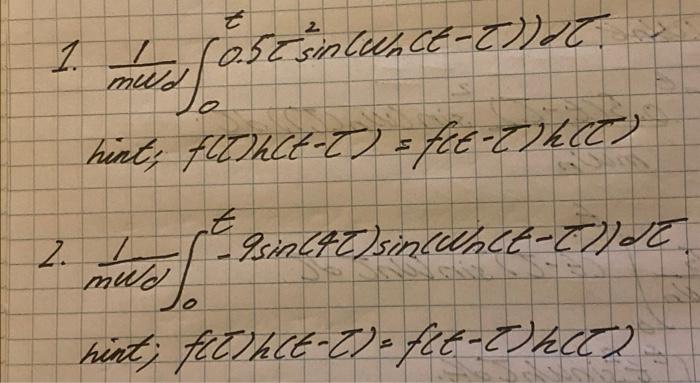 1. 1/(mωd) ∫₀ᵗ 0.5τ² sin(ωn(t-τ))dτ.
hint; f(τ)h(t-τ) = f(t-τ)h(τ)
2. 1/(mωd) ∫₀ᵗ -9sin(4τ)sin(ωn(t-τ))dτ.
hint; f(τ)h(t-τ) = f(t-τ)h(τ)